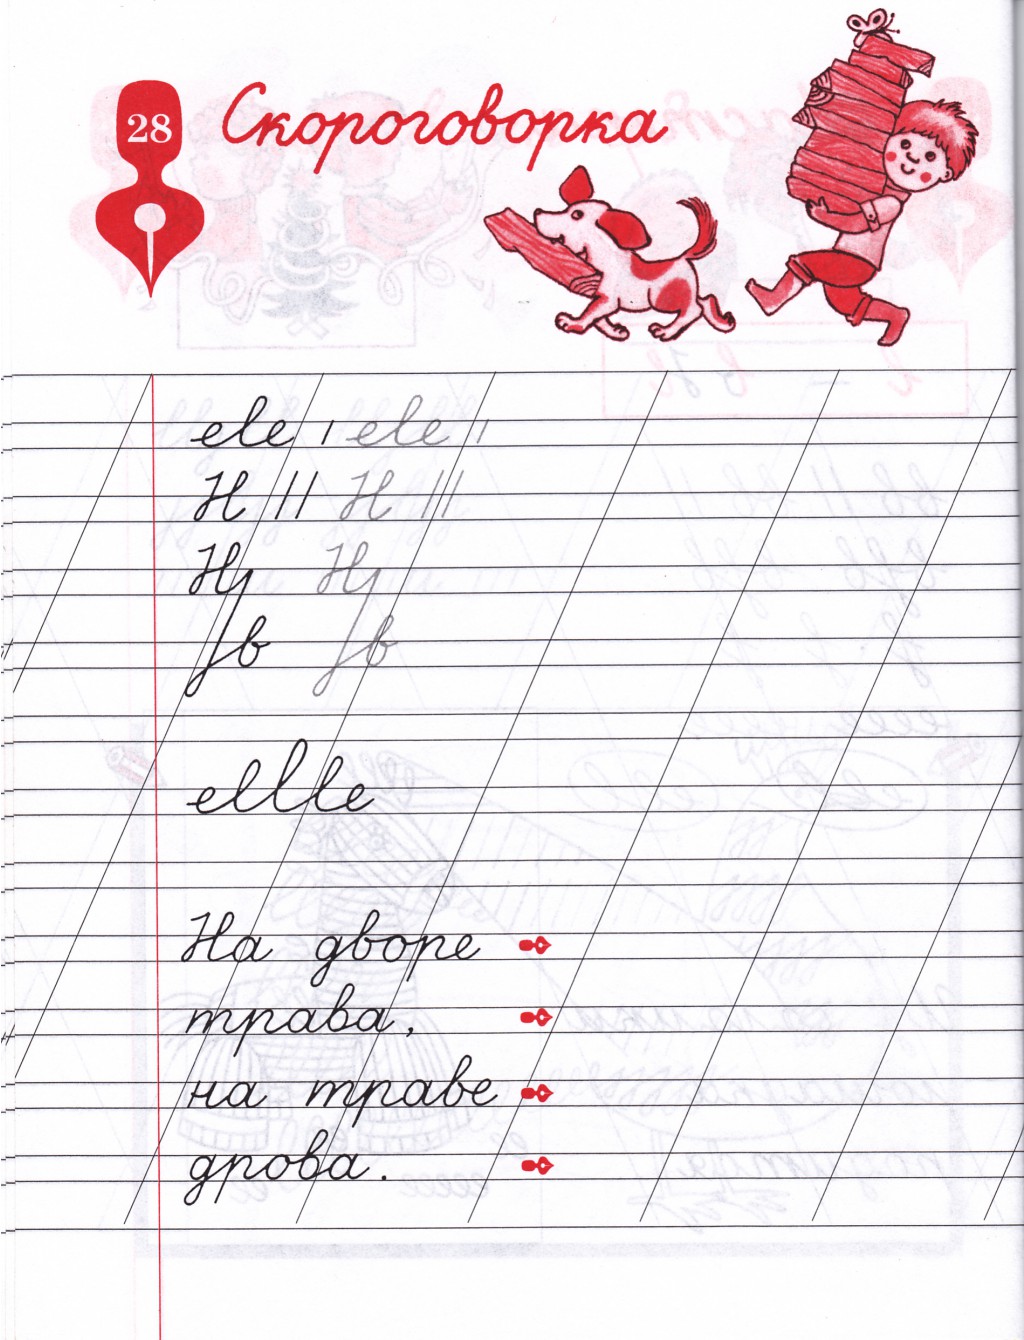 28
Скороговорка
еlе , еlе ,
Н // Н ///
Н
в в
еllle
На дворе
трава,
на траве
дрова.